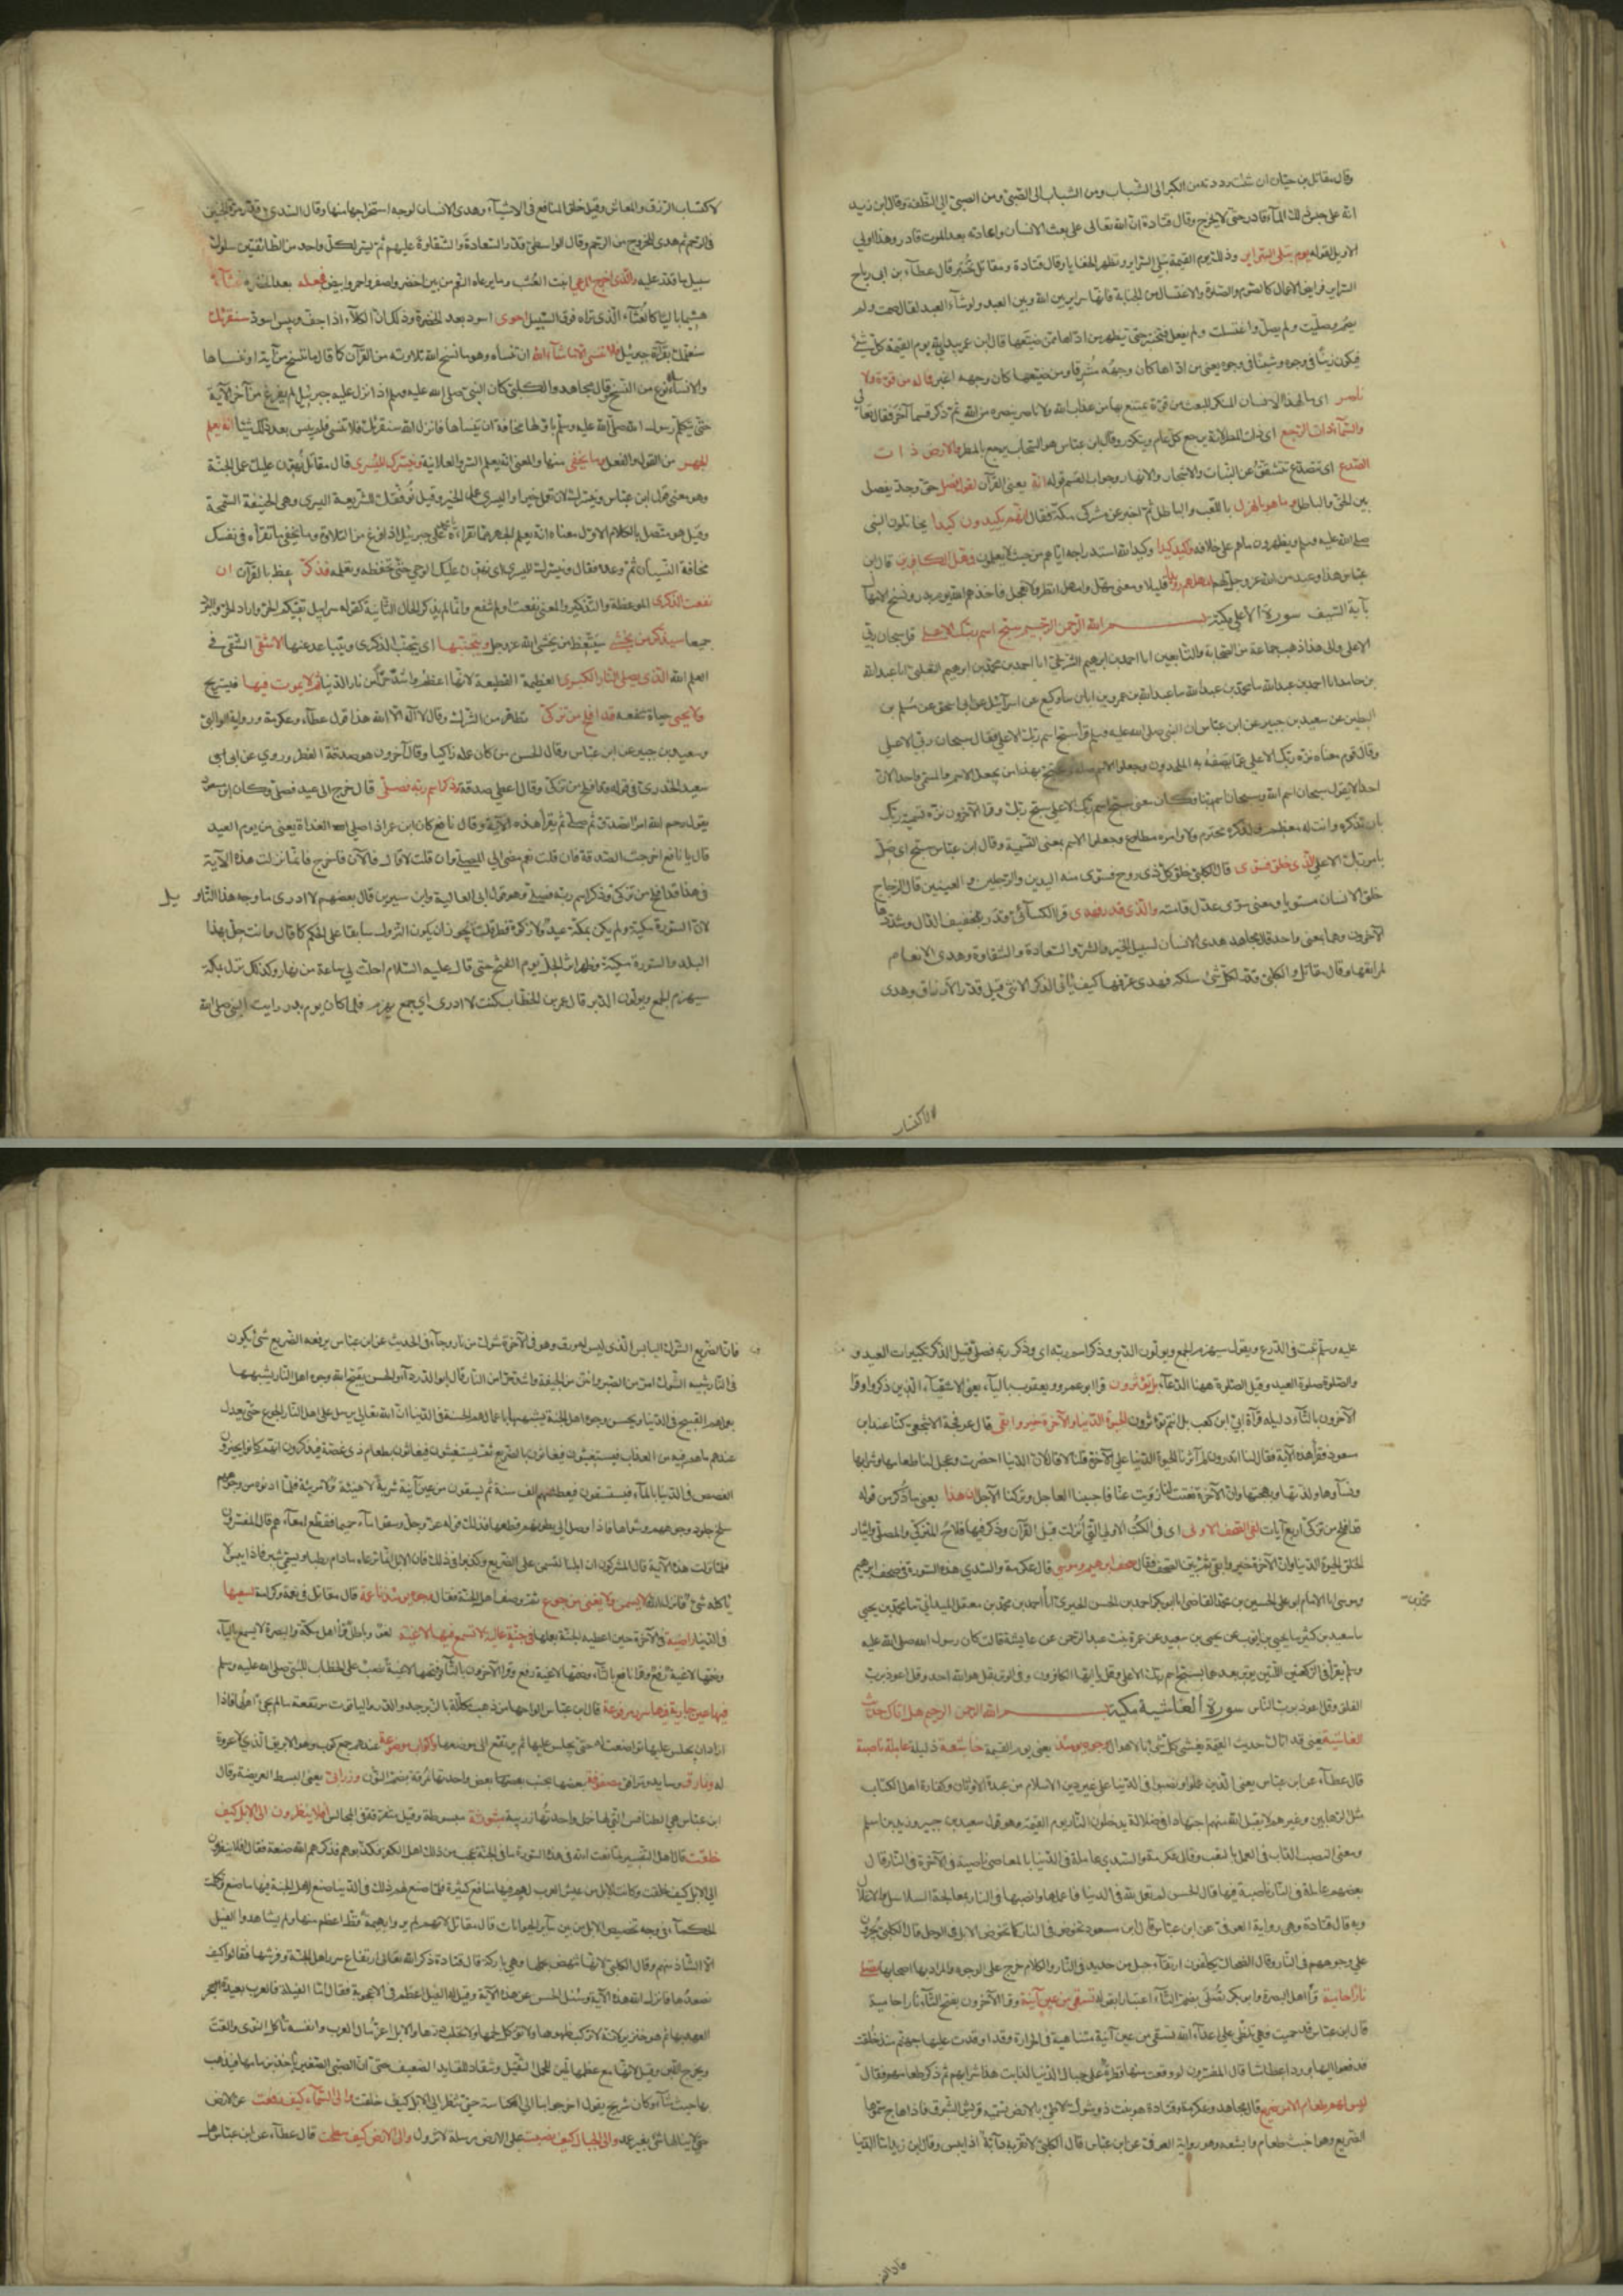 وقال مقاتل بن حيان ان شئت رددته من الكبر الى الشباب ومن الشباب الى الصبى ومن الصبى الى النطفة وقال ابن زيد
انه على حبس ذلك المآء قادر حتى لا يخرج وقال قتادة ان الله تعالى على بعث الانسان واعادته بعد الموت قادر وهذا اولى
الاويل لقوله يوم تبلى السراير وذلك يوم القيمة تبلى السراير وتظهر الخفايا وقال قتادة ومقاتل تختبر قال عطآء بن ابى رباح
السراير فرايض الاعمال كالصوم والصلوة والاغتسال من الجنابة فانها سراير بين الله وبين العبد ولو شآء العبد لقال صمت ولم
يصم وصليت ولم يصل واغتسلت ولم يغتسل فتختبر حتى يظهر من اداها ممن ضيعها قال ابن عمر يبدى الله يوم القيمة كل شئ
فيكون زينا فى وجوه وشينا فى وجوه يعنى من اداها كان وجهه مشرقا ومن ضيعها كان وجهه اغبر فما له من قوة ولا
ناصر اى ما لهذا الانسان المنكر للبعث من قوة يمتنع بها من عذاب الله ولا ناصر ينصره من الله ثم ذكر قسما آخر فقال تعالى
والسمآء ذات الرجع اى ذات المطر لانه يرجع كل عام ويتكرر وقال ابن عباس هو السحاب يرجع بالمطر والارض ذات
الصدع اى تتصدع تنشقق عن النبات والاشجار والانهار وجواب القسم قوله انه يعنى القرآن لقول فصل حق وجد يفصل
بين الحق والباطل وما هو بالهزل باللعب والباطل ثم اخبر عن مشركى مكة فقال انهم يكيدون كيدا يخاتلون النبى
صلى الله عليه وسلم ويظهرون ما هم على خلافه واكيد كيدا وكيد الله استدراجه اياهم من حيث لا يعلمون فمهل الكافرين قال ابن
عباس هذا وعيد من الله عز وجل لهم امهلهم رويدا قليلا ومعنى مهل وامهل انظر ولا تعجل فاخذهم الله يوم بدر ونسخ الامهال
بآية السيف سورة الاعلى مكية بسم الله الرحمن الرحيم سبح اسم ربك الاعلى قل سبحان ربى
الاعلى والى هذا ذهب جماعة من الصحابة والتابعين انا احمد بن ابرهيم الشريحى انا احمد بن محمد بن ابرهيم الثعلبى انا عبد الله
بن حامد انا احمد بن عبد الله نا محمد بن عبد الله نا عبد الله بن عمر بن ابان نا وكيع عن اسرآئيل عن ابى اسحق عن مسلم بن
البطين عن سعيد بن جبير عن ابن عباس ان النبى صلى الله عليه وسلم قرأ سبح اسم ربك الاعلى فقال سبحان ربى الاعلى
وقال قوم معناه نزه ربك الاعلى عما يصفه به الملحدون وجعلوا الاسم صلة ويحتج بهذا من يجعل الاسم والمسمى واحدا لان
احدا لا يقول سبحان اسم الله وسبحان اسم ربنا فكان معنى سبح اسم ربك الاعلى سبح ربك وقال الآخرون نزه تسمية ربك
بان تذكره وانت له معظم ولذكره محترم ولاوامره مطاوع وجعلوا الاسم بمعنى التسمية وقال ابن عباس سبح اى صل
بامر ربك الاعلى الذى خلق فسوى قال الكلبى خلق كل ذى روح فسوى منه اليدين والرجلين والعينين قال الزجاج
خلق الانسان مستويا ومعنى سوى عدل قامته والذى قدر فهدى قرا الكسآئى قدر بتخفيف الدال وشددها
الآخرون وهما بمعنى واحد قال مجاهد هدى الانسان لسبيل الخير والشر والسعادة والشقاوة وهدى الانعام
لمراتعها وقال مقاتل والكلبى قدر لكل شئ مسلكه فهدى عرفها كيف ياتى الذكر الانثى قيل قدر الارزاق وهدى
لاكتساب
لاكتساب الرزق والمعاش وقيل خلق المنافع فى الاشيآء وهدى الانسان لوجه استخراجها منها وقال السدى قدر مدة الجنين
فى الرحم ثم هدى للخروج من الرحم وقال الواسطى قدر السعادة والشقاوة عليهم ثم يسر لكل واحد من الطائفتين سلوك
سبيل ما قدر عليه والذى اخرج المرعى انبت العشب وما يرعاه النعم من بين اخضر واصفر واحمر وابيض فجعله بعد الخضرة غثآء
هشيما باليا كالغثآء الذى تراه فوق السيل احوى اسود بعد الخضرة وذلك ان الكلآء اذا جف ويبس اسود سنقرئك
سنعلمك بقرآءة جبريل فلا تنسى الا ما شآء الله ان تنسآه وهو ما نسخ الله تلاوته من القرآن كما قال ما ننسخ من آية او ننساها
والانسآء نوع من النسخ قال مجاهد والكلبى كان النبى صلى الله عليه وسلم اذا نزل عليه جبريل لم يفرغ من آخر الآية
حتى يتكلم رسول الله صلى الله عليه وسلم باولها مخافة ان ينساها فانزل الله سنقرئك فلا تنسى فلم ينس بعد ذلك شيئا انه يعلم
الجهر من القول والفعل وما يخفى منها والمعنى انه يعلم السر والعلانية ونيسرك لليسرى قال مقاتل نهون عليك عمل الجنة
وهو معنى قول ابن عباس ونيسرك لان تعمل خيرا واليسرى عمل الخير وقيل نوفقك للشريعة اليسرى وهى الحنيفية السمحة
وقيل هو متصل بالكلام الاول معناه انه يعلم الجهر مما تقرآه على جبريل اذا فرغ من التلاوة وما يخفى ما تقرأه فى نفسك
مخافة النسيان ثم وعده فقال ونيسرك لليسرى اى نهون عليك الوحى حتى تحفظه وتعلمه فذكر عظ بالقرآن ان
نفعت الذكرى الموعظة والتذكير والمعنى نفعت او لم تنفع وانما لم يذكر الحال الثانية كقوله سرابيل تقيكم الحر واراد الحر والبرد
جميعا سيذكر من يخشى سيتعظ من يخشى الله عز وجل ويتجنبها اى يتجنب الذكرى ويتباعد عنها الاشقى الشقى فى
العلم الله الذى يصلى النار الكبرى العظيمة الفظيعة لانها اعظم واشد حرا من نار الدنيا ثم لا يموت فيها فيستريح
ولا يحيى حياة تنفعه قد افلح من تزكى تطهر من الشرك وقال لا اله الا الله هذا قول عطآء وعكرمة ورواية الوالبى
وسعيد بن جبير عن ابن عباس وقال الحسن من كان عمله زاكيا وقال آخرون هو صدقة الفطر وروى عن ابى
سعيد الخدرى فى قوله قد افلح من تزكى وقال اعطى صدقة وذكر اسم ربه فصلى قال خرج الى عيد فصلى وكان ابن مسعود
يقول رحم الله امرأ تصدق ثم صلى ثم يقرأ هذه الآية وقال نافع كان ابن عمر اذا صلى الغداة يعنى من يوم العيد
قال يا نافع اخرجت الصدقة فان قلت نعم مضى الى المصلى وان قلت لا قال فالآن فاخرج فانما نزلت هذه الآية
فى هذا قد افلح من تزكى وذكر اسم ربه فصلى وهو قول ابى العالية وابن سيرين قال بعضهم لا ادرى ما وجه هذا التاويل
لان السورة مكية ولم يكن بمكة عيد ولا زكوة فطر قلت يجوز ان يكون النزول سابقا على الحكم كما قال وانت حل بهذا
البلد والسورة مكية وظهر اثر الحل يوم الفتح حتى قال عليه السلام احلت لى ساعة من نهار وكذلك نزل بمكة
سيهزم الجمع ويولون الدبر قال عمر بن الخطاب كنت لا ادرى اى جمع يهزم فلما كان يوم بدر رايت النبى صلى الله
عليه وسلم يثب فى الدرع ويقول سيهزم الجمع ويولون الدبر وذكر اسم ربه اى وذكر ربه فصلى قيل الذكر تكبيرات العيد و
والصلوة صلوة العيد وقيل الصلوة ههنا الدعآء بل تؤثرون قرا ابو عمرو ويعقوب باليآء يعنى الاشقيآء الذين ذكروا وقرا
الآخرون بالتآء دليله قرآة ابى ابن كعب بل انتم تؤثرون الحيوة الدنيا والآخرة خير وابقى قال عرفجة الاشجعى كنا عند ابن
مسعود فقرأ هذه الآية فقال لنا اتدرون لم آثرنا الحيوة الدنيا على الآخرة قلنا لا قال لان الدنيا احضرت وعجل لنا طعامها وشرابها
ونسآوها ولذتها وبهجتها وان الآخرة نعتت لنا وزويت عنا فاحببنا العاجل وتركنا الآجل ان هذا يعنى ما ذكر من قوله
قد افلح من تزكى اربع آيات لفى الصحف الاولى اى فى الكتب الاولى التى انزلت قبل القرآن وذكر فيها فلاح المتزكى والمصلى وايثار
الخلق الحيوة الدنيا وان الآخرة خير وابقى ثم بين الصحف فقال صحف ابرهيم وموسى قال عكرمة والسدى هذه السورة فى صحف ابرهيم
وموسى انا الامام ابو على الحسين بن محمد القاضى انا ابو بكر احمد بن الحسن الحيرى انا احمد بن محمد بن معقل الميدانى نا محمد بن يحيى
نا سعيد بن كثير نا يحيى بن ايوب عن يحيى بن سعيد عن عمرة بنت عبد الرحمن عن عايشة قالت كان رسول الله صلى الله عليه
وسلم يقرأ فى الركعتين اللتين يوتر بعدهما بسبح اسم ربك الاعلى وقل يا ايها الكافرون وفى الوتر بقل هو الله احد وقل اعوذ برب
الفلق وقل اعوذ برب الناس سورة الغاشية مكية بسم الله الرحمن الرحيم هل اتاك حديث
الغاشية يعنى قد اتاك حديث القيمة يغشى كل شئ بالاهوال وجوه يومئذ يعنى يوم القيمة خاشعة ذليلة عاملة ناصبة
قال عطآء عن ابن عباس يعنى الذين عملوا ونصبوا فى الدنيا على غير دين الاسلام من عبدة الاوثان وكفار اهل الكتاب
مثل الرهابين وغيرهم لا يقبل الله منهم اجتهادا فى ضلالة يدخلون النار يوم القيمة وهو قول سعيد بن جبير وزيد بن اسلم
ومعنى النصب الداب فى العمل بالتعب وقال عكرمة والسدى عاملة فى الدنيا بالمعاصى ناصبة فى الآخرة فى النار قال
بعضهم عاملة فى النار ناصبة فيها قال الحسن لم تعمل لله فى الدنيا فاعملها وانصبها فى النار بمعالجة السلاسل والاغلال
وبه قال قتادة وهى رواية العوفى عن ابن عباس قال ابن مسعود تخوض فى النار كما تخوض الابل فى الوحل قال الكلبى يجرون
على وجوههم فى النار وقال الضحاك يكلفون ارتقآء جبل من حديد فى النار والكلام خرج على الوجوه والمراد بها اصحابها تصلى
نارا حامية قرأ اهل البصرة وابو بكر تصلى بضم التآء اعتبارا بقوله تسقى من عين آنية وقرا الآخرون بفتح التآء نارا حامية
قال ابن عباس قد حميت فهى تلظى على اعدآء الله تسقى من عين آنية متناهية فى الحرارة وقد اوقدت عليها جهنم منذ خلقت
فدفعوا اليها وردا عطاشا قال المفسرون لو وقعت منها قطرة على جبال الدنيا لذابت هذا شرابهم ثم ذكر طعامهم فقال
ليس لهم طعام الا من ضريع قال مجاهد وعكرمة وقتادة هو نبت ذو شوك لاطئ بالارض تسميه قريش الشبرق فاذا هاج سموها
الضريع وهو اخبث طعام وابشعه وهو رواية العوفى عن ابن عباس قال الكلبى لا تقربه دآبة اذا يبس وقال ابن زيد اما الدنيا
فان الضريع الشوك اليابس الذى ليس له ورق وهو فى الآخرة شوك من نار وجآء فى الحديث عن ابن عباس يرفعه الضريع شئ يكون
فى النار شبه الشوك امر من الصبر وانتن من الجيفة واشد حرا من النار قال ابو الدردآء والحسن
عندهم ما هم فيه من العذاب فيستغيثون فيغاثون بالضريع ثم يستغيثون فيغاثون بطعام ذى غصة فيذكرون انهم كانوا يجيزون
الغصص فى الدنيا بالمآء فيستسقون فيعطشهم الف سنة ثم يسقون من عين آنية شربة لا هنيئة ولا مريئة فلما ادنوه من وجوههم
سلخ جلود وجوههم وشواها فاذا وصل الى بطونهم قطعها فذلك قوله عز وجل وسقوا مآء حميما فقطع امعآءهم قال المفسرون
فلما نزلت هذه الآية قال المشركون ان ابلنا لتسمن على الضريع وكذبوا فى ذلك فان الابل انما ترعاه ما دام رطبا ويسمى شبرقا فاذا يبس لا
ياكله شئ فانزل الله لا يسمن ولا يغنى من جوع ثم وصف اهل الجنة فقال وجوه يومئذ ناعمة قال مقاتل فى نعمة وكرامة لسعيها
فى الدنيا راضية فى الآخرة حين اعطيت الجنة بعملها فى جنة عالية لا تسمع فيها لاغية لغو وباطل قرأ اهل مكة والبصرة لا يسمع باليآء
وضمها لاغية رفع وقرا نافع بالتآء وضمها لاغية رفع وقرا الآخرون بالتآء وفتحها لاغية نصب على الخطاب للنبى صلى الله عليه وسلم
فيها عين جارية فيها سرر مرفوعة قال ابن عباس الواحها من ذهب مكللة بالزبرجد والدر والياقوت مرتفعة ما لم يجئ اهلها فاذا
اراد ان يجلس عليها تواضعت له حتى يجلس عليها ثم ترتفع الى موضعها واكواب موضوعة عندهم جمع كوب وهو الابريق الذى لا عروة
له ونمارق وسايد ومرافق مصفوفة بعضها بجنب بعض واحدتها نمرقة بضم النون وزرابى يعنى البسط العريضة وقال
ابن عباس هى الطنافس التى لها خمل واحدتها زربية مبثوثة مبسوطة وقيل متفرقة فى المجالس افلا ينظرون الى الابل كيف
خلقت قال اهل التفسير لما نعت الله فى هذه السورة ما فى الجنة عجب من ذلك اهل الكفر وكذبوه فذكرهم الله صنعه فقال افلا ينظرون
الى الابل كيف خلقت وكانت الابل من عيش العرب لهم فيها منافع كثيرة فلما صنع لهم ذلك فى الدنيا صنع لاهل الجنة فيها ما صنع وتكلمت
الحكمآء فى وجه تخصيص الابل من بين ساير الحيوانات قال مقاتل لانهم لم يروا بهيمة قط اعظم منها ولم يشاهدوا الفيل
الا الشاذ منهم وقال الكلبى لانها تنهض بحملها وهى باركة قال قتادة ذكر الله تعالى ارتفاع سرر اهل الجنة وفرشها فقالوا كيف
نصعدها فانزل الله هذه الآية وسئل الحسن عن هذه الآية وقيل له الفيل اعظم فى الاعجوبة فقال اما الفيلة فالعرب بعيدة
العهد بها ثم هو خنزير لا تركب ظهورها ولا توكل لحمها ولا يحلب درها والابل اعز مال العرب وانفسه تاكل النوى والقت
وتخرج اللبن وقيل لانها مع عظمها تلين للحمل الثقيل وتنقاد للقايد الضعيف حتى ان الصبى الصغير ياخذ بزمامها فيذهب
بها حيث شآء وكان شريح يقول اخرجوا بنا الى الكناسة حتى ننظر الى الابل كيف خلقت والى السمآء كيف رفعت عن الارض
حتى لا ينالها شئ بغير عمد والى الجبال كيف نصبت على الارض مرساة لا تزول والى الارض كيف سطحت قال عطآء عن ابن عباس هل